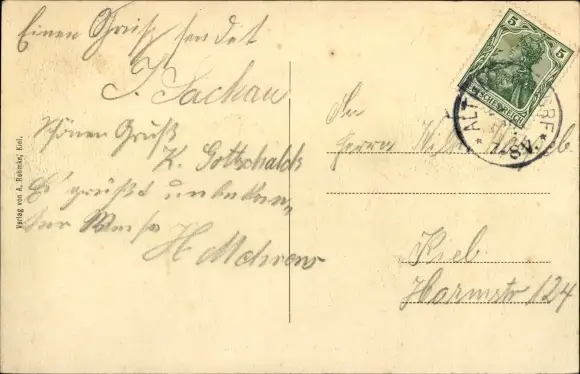 Einen Gruß sendet
J. Sackau
Schönen Gruß
K. Gottschalck
Es grüßt unbekan-
ter Weise
H Mehrens
Verlag von A. Rohmke, Kiel.
5 5
DEUTSCHES REICH
ALT
7-8V.
An
Herrn
Kiel
Harmstr 124